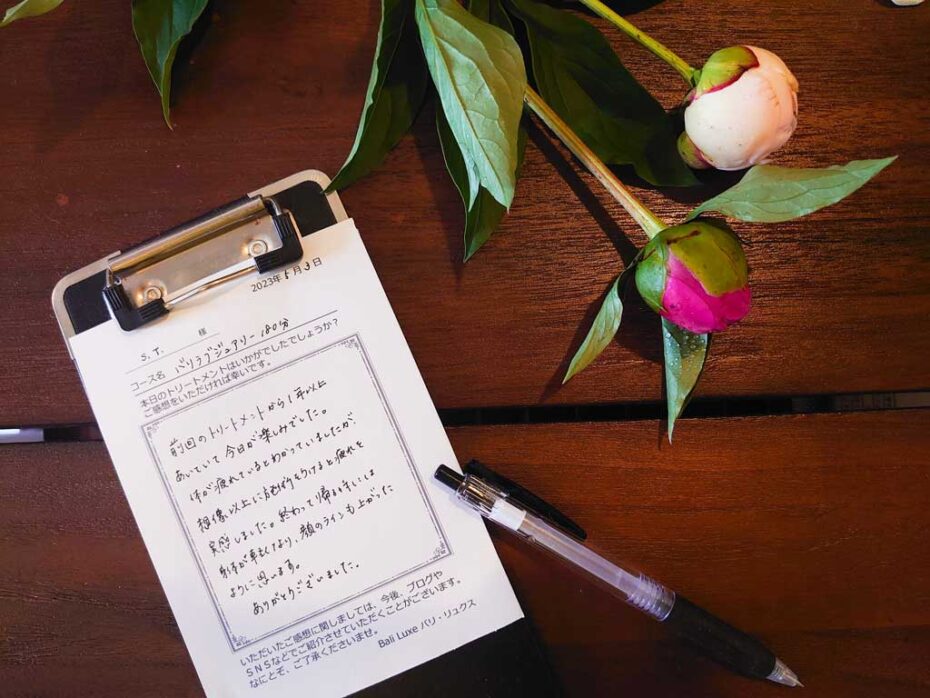 2023年5月3日
S.T. 様
コース名 バリラグジュアリー 180分
本日のトリートメントはいかがでしたでしょうか？
ご感想をいただければ幸いです。
前回のトリートメントから1年以上
あいていて今日が楽しみでした。
体が疲れているとわかっていましたが、
想像以上に施術を受けると疲れを
実感しました。終わって帰る
身体が軽くなり、顔のラインも上がった
ように思います。
ありがとうございました。
いただいたご感想に関しましては、今後、ブログや
ＳＮＳなどでご紹介させていただくことがございます。
なにとぞ、ご了承くださいませ。
Bali Luxe バリ・リュクス